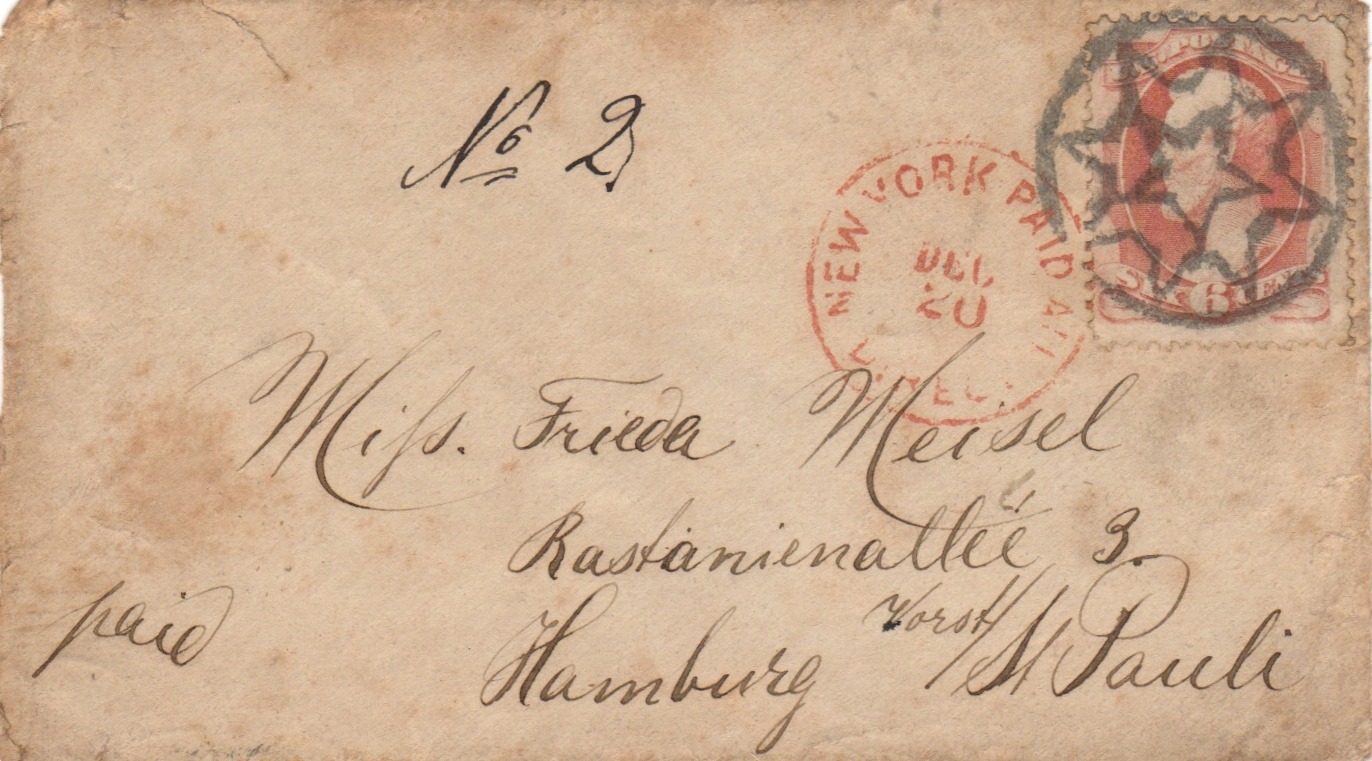 No 2
U.S. POSTAGE
NEW YORK PAID ALL
DEC
20
DIRECT
SIX 6 CENTS
Miss. Frieda Meisel
Kastanienallee 3.
Hamburg Vorst/ St Pauli
paid